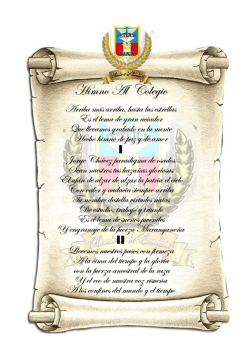 Himno Al Colegio
Arriba más arriba, hasta las estrellas
Es el lema de gran aviador
Que llevamos grabado en la mente
Hecho himno de paz y de amor
I
Jorge Chávez paradigma de osados
Sean nuestras tus hazañas gloriosas
Afán de alzar de alzar la patria el vuelo
Con valor y audacia siempre arriba
Tu nombre destella virtudes mútos
De estudio, trabajo y triunfo
Es el lema de suenos juveniles
Y engranaje de la fuerza Maranganeña
II
Llevemos nuestros pasos con firmeza
A la cima del tiempo y la gloria
con la fuerza ancestral de la raza
Y el eco de nuestra voz risueña
A los confines del mundo y el tiempo